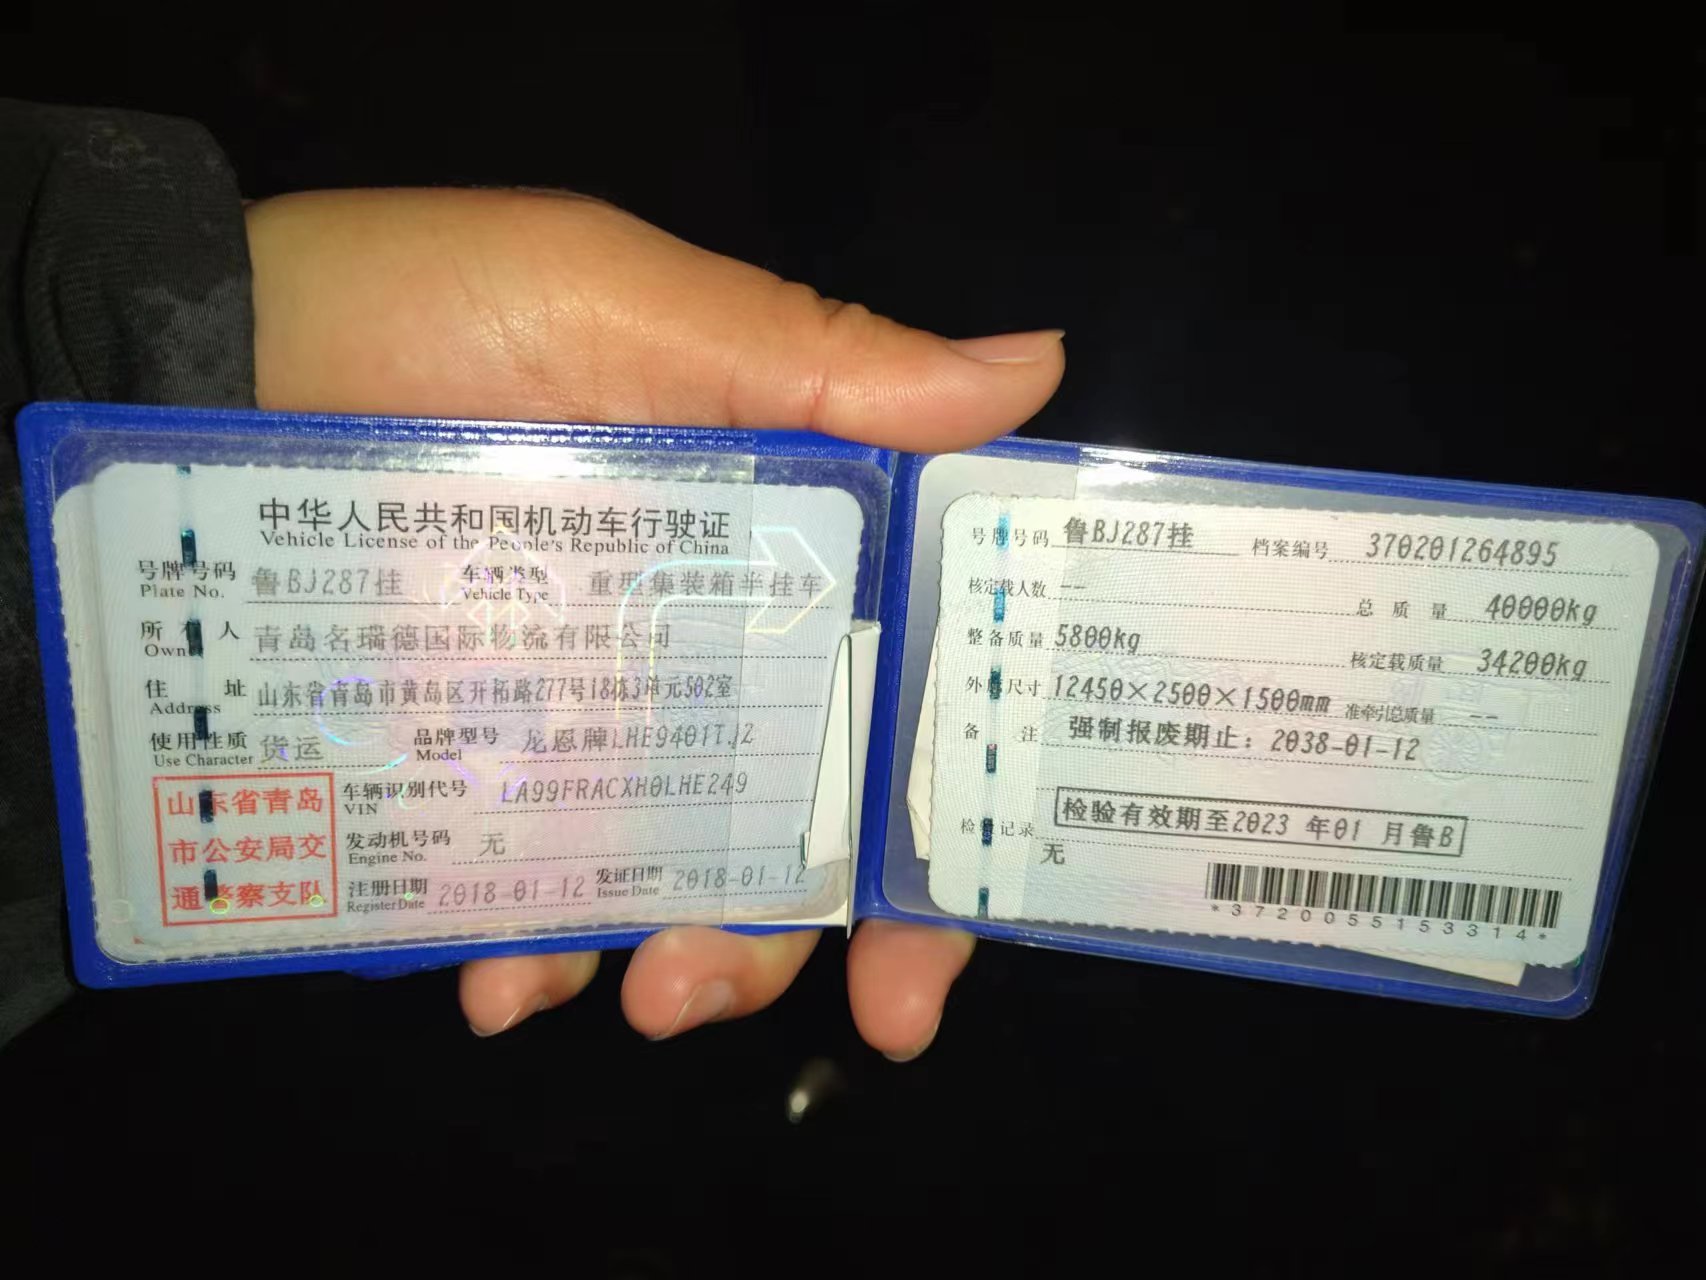 中华人民共和国机动车行驶证
Vehicle License of the People's Republic of China
号牌号码 鲁BJ287挂 车辆类型 重型集装箱半挂车
Plate No. Vehicle Type
所有人 青岛名瑞德国际物流有限公司
Owner
住址 山东省青岛市黄岛区开拓路277号18栋3单元502室
Address
使用性质 货运 品牌型号 龙恩牌LHE9401TJZ
Use Character Model
车辆识别代号 LA99FRACXH0LHE249
VIN
发动机号码 无
Engine No.
注册日期 2018-01-12 发证日期 2018-01-12
Register Date Issue Date
山东省青岛
市公安局交
通警察支队
号牌号码 鲁BJ287挂 档案编号 370201264895
核定载人数 -- 总质量 40000kg
整备质量 5800kg 核定载质量 34200kg
外廓尺寸 12450×2500×1500mm 准牵引总质量 --
备注 强制报废期止：2038-01-12
检验记录 检验有效期至2023年01月鲁B
无
*3720055153314*